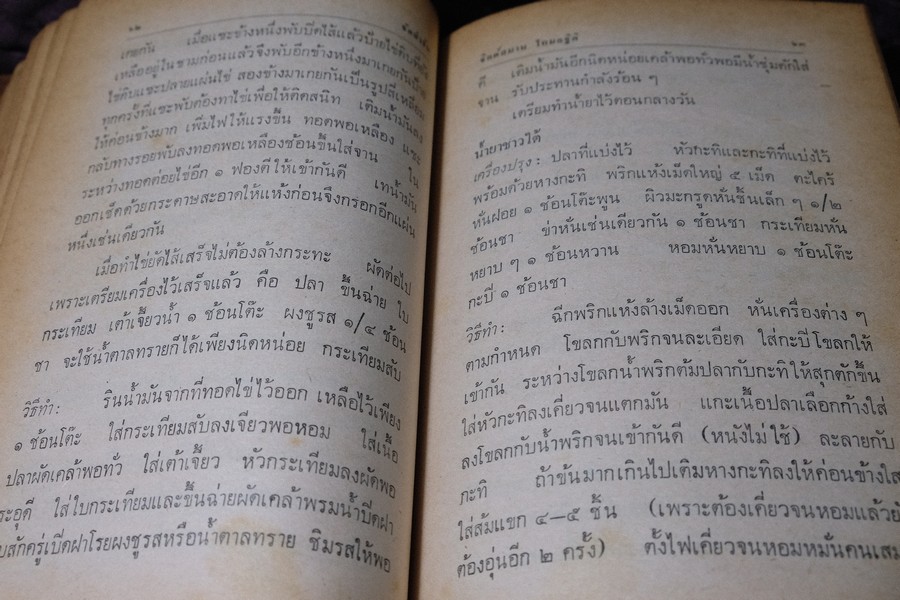 ๖๒
เกยกัน เมื่อแซะข้างหนึ่งพับปิดไส้แล้วป้ายไข่ดิบที่
เหลืออยู่ในชามก่อนแล้วจึงพับอีกข้างหนึ่งมาเกยกัน
ไข่ดิบแซะปลายแผ่นไข่ สองข้างมาเกยกันเป็นรูปสี่เหลี่ยม
ทุกครั้งที่แซะพับต้องทาไข่เพื่อให้ติดสนิท เติมน้ำมันลง
ให้ค่อนข้างมาก เพิ่มไฟให้แรงขึ้น ทอดพอเหลือง แซะ
กลับทางรอยพับลงทอดพอเหลืองช้อนขึ้นใส่จาน ใน
ระหว่างทอดต่อยไข่อีก ๑ ฟองตีให้เข้ากันดี เทน้ำมัน
ออกเช็ดด้วยกระดาษสะอาดให้แห้งก่อนจึงกรอกอีกแผ่น
หนึ่งเช่นเดียวกัน
เมื่อทำไข่ยัดไส้เสร็จไม่ต้องล้างกระทะ ผัดต่อไป
เพราะเตรียมเครื่องไว้เสร็จแล้ว คือ ปลา ขึ้นฉ่าย ใบ
กระเทียม เต้าเจี้ยวน้ำ ๑ ช้อนโต๊ะ ผงชูรส ๑/๔ ช้อน
ชา จะใช้น้ำตาลทรายก็ได้เพียงนิดหน่อย กระเทียมสับ
วิธีทำ: รินน้ำมันจากที่ทอดไข่ไว้ออก เหลือไว้เพียง
๑ ช้อนโต๊ะ ใส่กระเทียมสับลงเจียวพอหอม ใส่เนื้อ
ปลาผัดเคล้าพอทั่ว ใส่เต้าเจี้ยว หัวกระเทียมลงผัดพอ
ระอุดี ใส่ใบกระเทียมและขึ้นฉ่ายผัดเคล้าพรมน้ำปิดฝา
สักครู่เปิดฝาโรยผงชูรสหรือน้ำตาลทราย ชิมรสให้พอ
จิตต์สมาน โกมลฐิติ ๖๓
ดี เติมน้ำมันอีกนิดหน่อยเคล้าพอทั่วพอมีน้ำชุ่มตักใส่
จาน รับประทานกำลังร้อน ๆ
เตรียมทำน้ำยาไว้ตอนกลางวัน
น้ำยาชาวใต้
เครื่องปรุง: ปลาที่แบ่งไว้ หัวกะทิและกะทิที่แบ่งไว้
พร้อมด้วยหางกะทิ พริกแห้งเม็ดใหญ่ ๕ เม็ด ตะไคร้
หั่นฝอย ๑ ช้อนโต๊ะพูน ผิวมะกรูดหั่นชิ้นเล็ก ๆ ๑/๒
ช้อนชา ข่าหั่นเช่นเดียวกัน ๑ ช้อนชา กระเทียมหั่น
หยาบ ๆ ๑ ช้อนหวาน หอมหั่นหยาบ ๑ ช้อนโต๊ะ
กะปิ ๑ ช้อนชา
วิธีทำ: ฉีกพริกแห้งล้างเม็ดออก หั่นเครื่องต่าง ๆ
ตามกำหนด โขลกกับพริกจนละเอียด ใส่กะปิโขลกให้
เข้ากัน ระหว่างโขลกน้ำพริกต้มปลากับกะทิให้สุกตักขึ้น
ใส่หัวกะทิลงเคี่ยวจนแตกมัน แกะเนื้อปลาเลือกก้างใส่
ลงโขลกกับน้ำพริกจนเข้ากันดี (หนังไม่ใช้) ละลายกับ
กะทิ ถ้าข้นมากเกินไปเติมหางกะทิลงให้ค่อนข้างใส
ใส่ส้มแขก ๔—๕ ชิ้น (เพราะต้องเคี่ยวจนหอมแล้วยัง
ต้องอุ่นอีก ๒ ครั้ง) ตั้งไฟเคี่ยวจนหอมหมั่นคนเสม